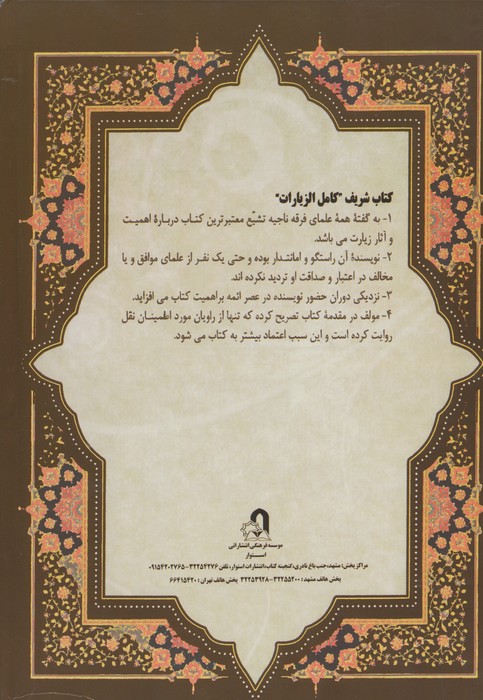 کتاب شریف "کامل الزیارات"
۱- به گفتهٔ همهٔ علمای فرقه ناجیه تشیّع معتبرترین کتاب دربارهٔ اهمیت
و آثار زیارت می باشد.
۲- نویسندهٔ آن راستگو و امانتدار بوده و حتی یک نفر از علمای موافق و یا
مخالف در اعتبار و صداقت او تردید نکرده اند.
۳- نزدیکی دوران حضور نویسنده در عصر ائمه براهمیت کتاب می افزاید.
۴- مولف در مقدمهٔ کتاب تصریح کرده که تنها از راویان مورد اطمینان نقل
روایت کرده است و این سبب اعتماد بیشتر به کتاب می شود.
موسسه فرهنگی انتشاراتی
استوار
مراکز پخش: مشهد، جنب باغ نادری، گنجینه کتاب، انتشارات استوار، تلفن ۳۲۲۵۴۲۷۶-۰۹۱۵۴۲۰۲۷۶۵
پخش هاتف مشهد: ۳۲۲۵۵۲۰۰-۳۲۲۵۳۹۲۸ پخش هاتف تهران: ۶۶۴۱۵۴۲۰